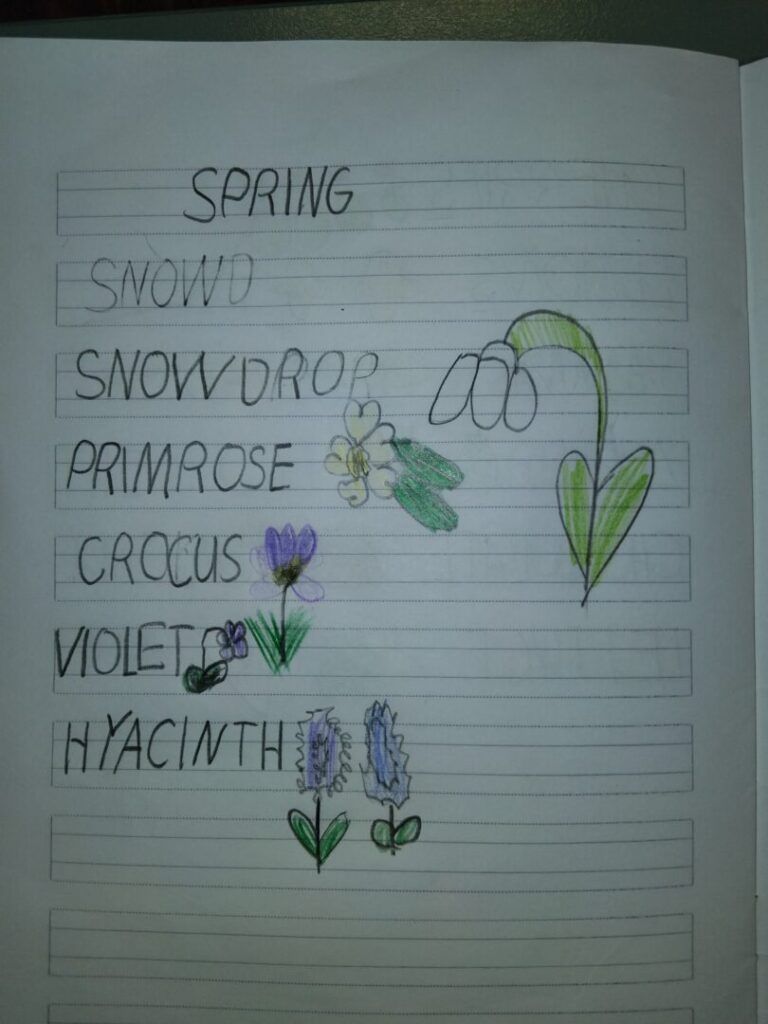 SPRING
SNOWD
SNOWDROP
PRIMROSE
CROCUS
VIOLET
HYACINTH